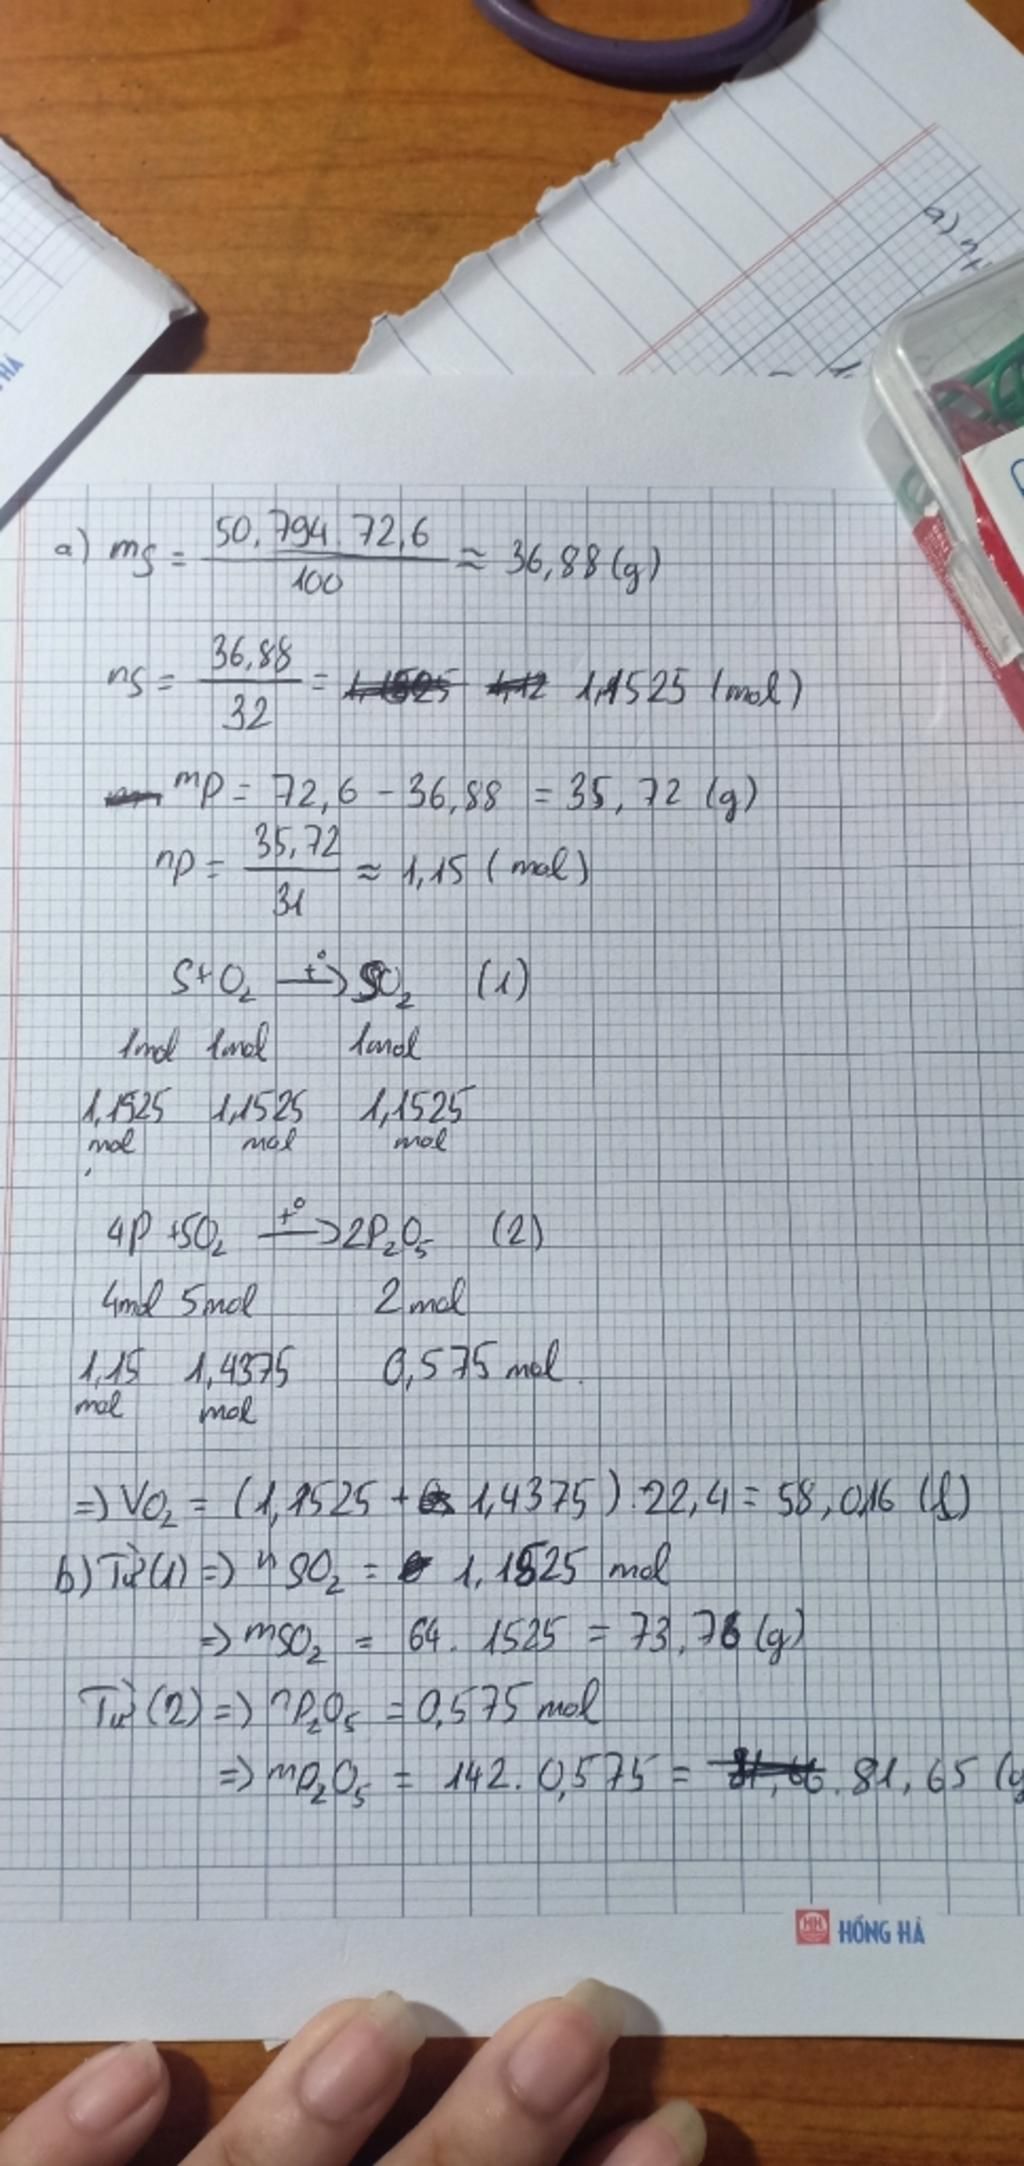 a) n
HÀ
a) mS = 50,794.72,6 / 100 ≈ 36,88 (g)
nS = 36,88 / 32 = 1,1525 (mol)
mP = 72,6 - 36,88 = 35,72 (g)
nP = 35,72 / 31 ≈ 1,15 (mol)
S + O₂ t°→ SO₂ (1)
1mol 1mol 1mol
1,1525 1,1525 1,1525
mol mol mol
4P + 5O₂ t°→ 2P₂O₅ (2)
4mol 5mol 2mol
1,15 1,4375 0,575 mol.
mol mol
=> VO₂ = (1,1525 + 1,4375).22,4 = 58,016 (l)
b) Từ (1) => nSO₂ = 1,1525 mol
=> mSO₂ = 64. 1525 = 73,76 (g)
Từ (2) => nP₂O₅ = 0,575 mol
=> mP₂O₅ = 142.0,575 = 81,65 (g
HH HỒNG HÀ